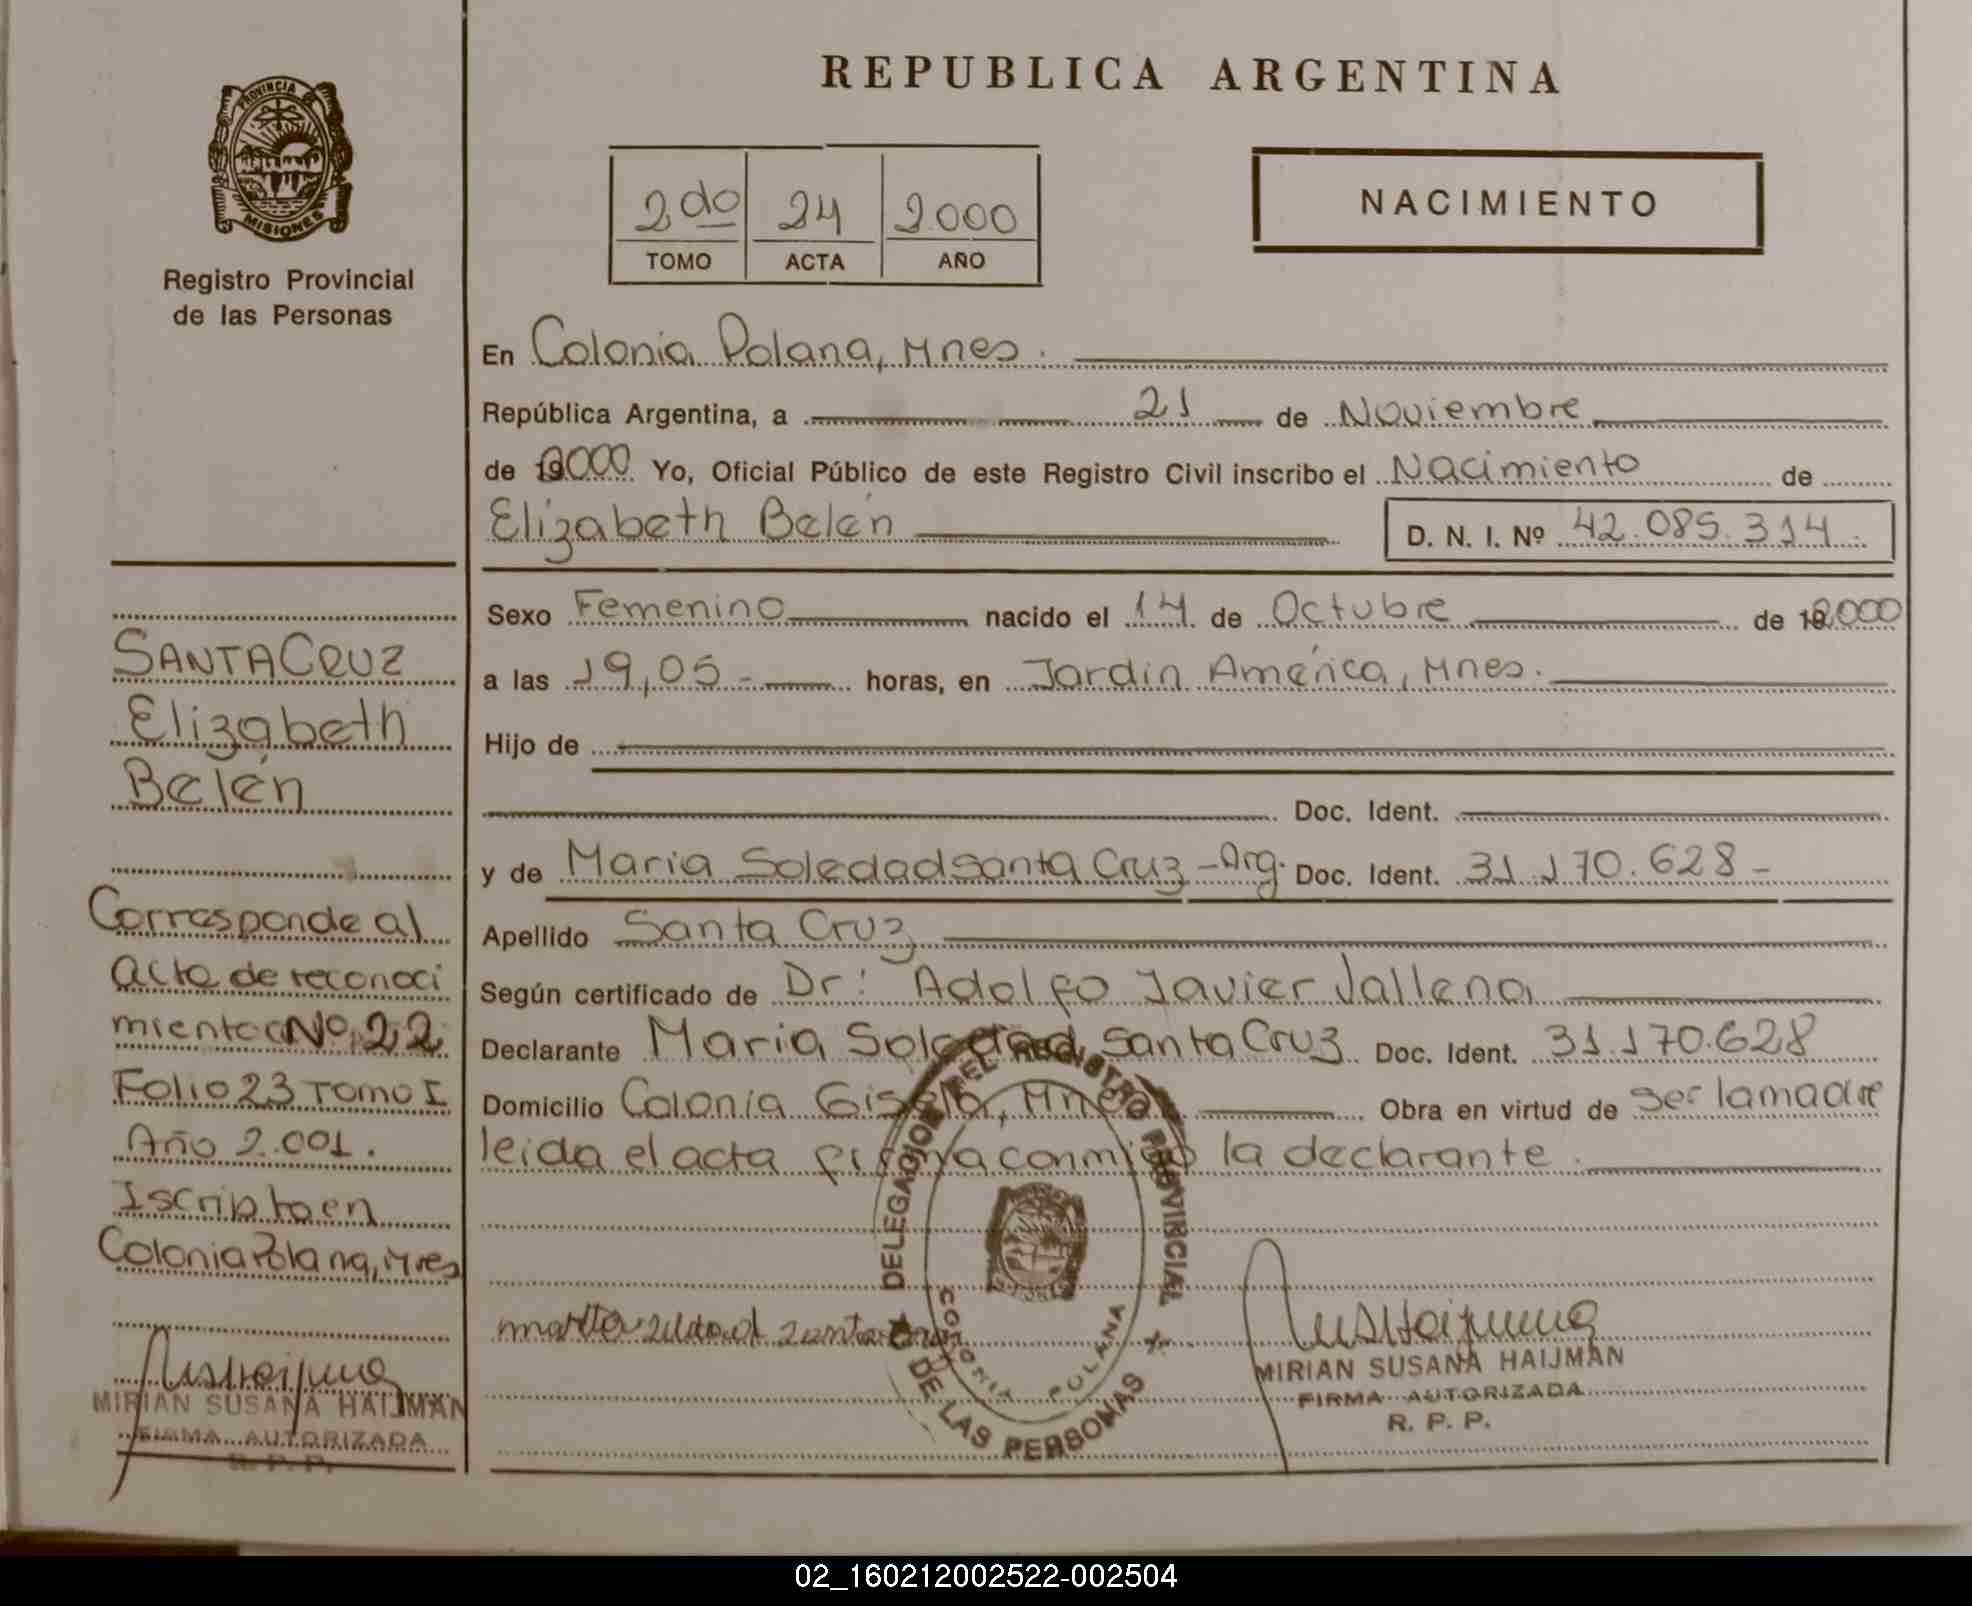 REPUBLICA ARGENTINA
PROVINCIA DE
MISIONES
Registro Provincial
de las Personas
2do 24 2.000
TOMO ACTA AÑO
NACIMIENTO
En Colonia Polana, Mnes.
República Argentina, a 21 de Noviembre
de 2000 Yo, Oficial Público de este Registro Civil inscribo el Nacimiento de
Elizabeth Belén D. N. I. Nº 42.085.314
Sexo Femenino nacido el 14 de Octubre de 2000
a las 19,05 - horas, en Jardin América, Mnes.
Hijo de
Doc. Ident.
y de Maria Soledad Santa Cruz - Arg. Doc. Ident. 31.170.628 -
Apellido Santa Cruz
Según certificado de Dr: Adolfo Javier
Declarante Maria Soledad Santa Cruz Doc. Ident. 31.170.628
Domicilio Colonia Gisela, Mnes. Obra en virtud de ser la madre
leida el acta firma conmigo la declarante.
SANTA CRUZ
Elizabeth
Belén
Corresponde al
acta de reconoci
miento Nº 22
Folio 23 Tomo I
Año 2.001.
Iscripto en
Colonia Polana, Mnes
MIRIAN SUSANA HAIJMAN
FIRMA AUTORIZADA
R. P. P.
DELEGACION DEL REGISTRO PROVINCIAL
DE LAS PERSONAS
COLONIA POLANA
MIRIAN SUSANA HAIJMAN
FIRMA AUTORIZADA
R. P. P.
02_160212002522-002504